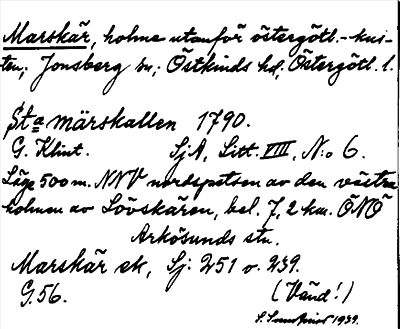 Marskär, holme utanför östergötl.-kus-
ten; Jonsberg sn; Östkinds hd, Östergötl. l.
Sta märskallen 1790.
G. Klint. SjA, Litt. VIII, N:o 6.
Läge 500 m. NNV nordspetsen av den västra
holmen av Lövskären, bel. 7,2 km. ÖNÖ
Arkösunds stn.
Marskär ek, Sj: 251 o. 239.
G. 56. (Vänd!)
1939.